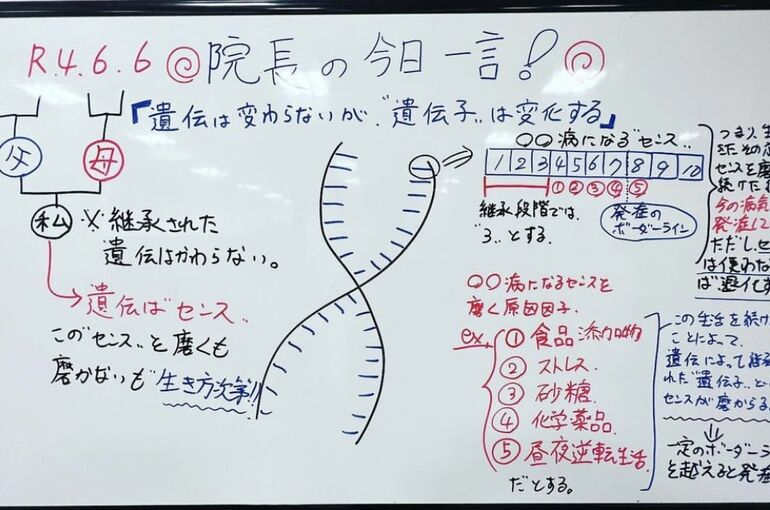 R.4.6.6 院長の今日一言!
「遺伝は変わらないが、"遺伝子"は変化する」
父
母
私
※継承された
遺伝はかわらない。
遺伝は"センス"
この"センス"を磨くも
磨かないも"生き方次第!!
〇〇病になる"センス"
1 2 3 4 5 6 7 8 9 10
① ② ③ ④ ⑤
継承段階では
"3"とする。
発症の
ボーダーライン
〇〇病になるセンスを
磨く原因因子。
ex.
① 食品添加物
② ストレス.
③ 砂糖.
④ 化学薬品.
⑤ 昼夜逆転生活.
だとする。
つまり、生
センスを磨
続けた
今の病気
発症して
ただし、セ
は使わな
ば退化す
この生活を続け
ことによって、
遺伝によって継
れた"遺伝子"とい
センスが磨かる
一定のボーダーラ
を越えると発症